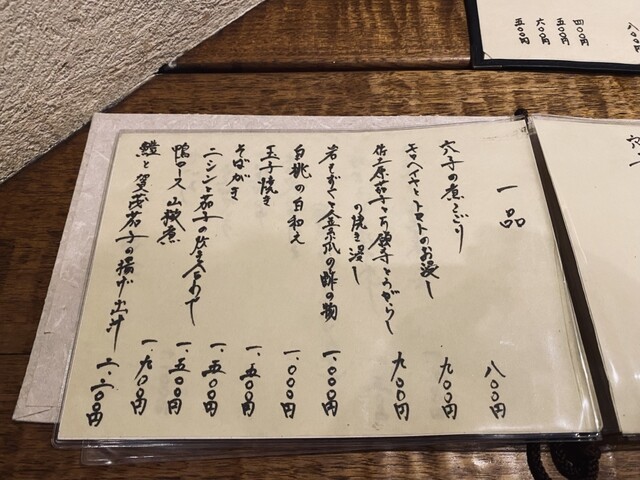 八〇〇円
四〇〇円
五〇〇円
六〇〇円
五〇〇円
一品
穴子の煮こごり 八〇〇円
モロヘイヤとトマトのお浸し 九〇〇円
佐土原茄子と万願寺とうがらし
の焼き浸し 九〇〇円
岩もずくと金糸瓜の酢の物 一、〇〇〇円
白桃の白和え 一、〇〇〇円
玉子焼き 一、五〇〇円
そばがき 一、五〇〇円
ニシンと茄子の炊き合わせ 一、五〇〇円
鴨ロース山椒煮 一、九〇〇円
鱧と賀茂茄子の揚げ出汁 二、二〇〇円